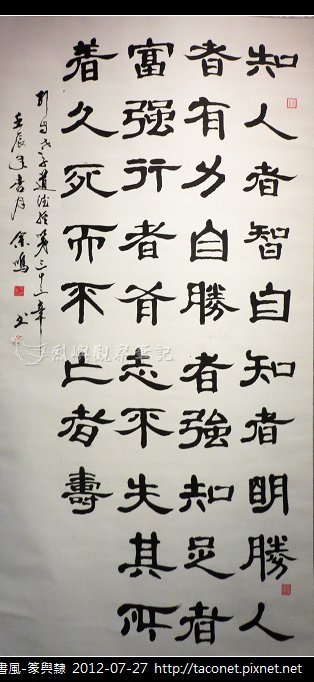 知人者智自知者明勝人
者有力自勝者強知足者
富強行者有志不失其所
着久死而不亡者壽
老子道德經第三十三章
壬辰
余鳴
觀察筆記
書風-篆與隸 2012-07-27 http://taconet.pixnet.net